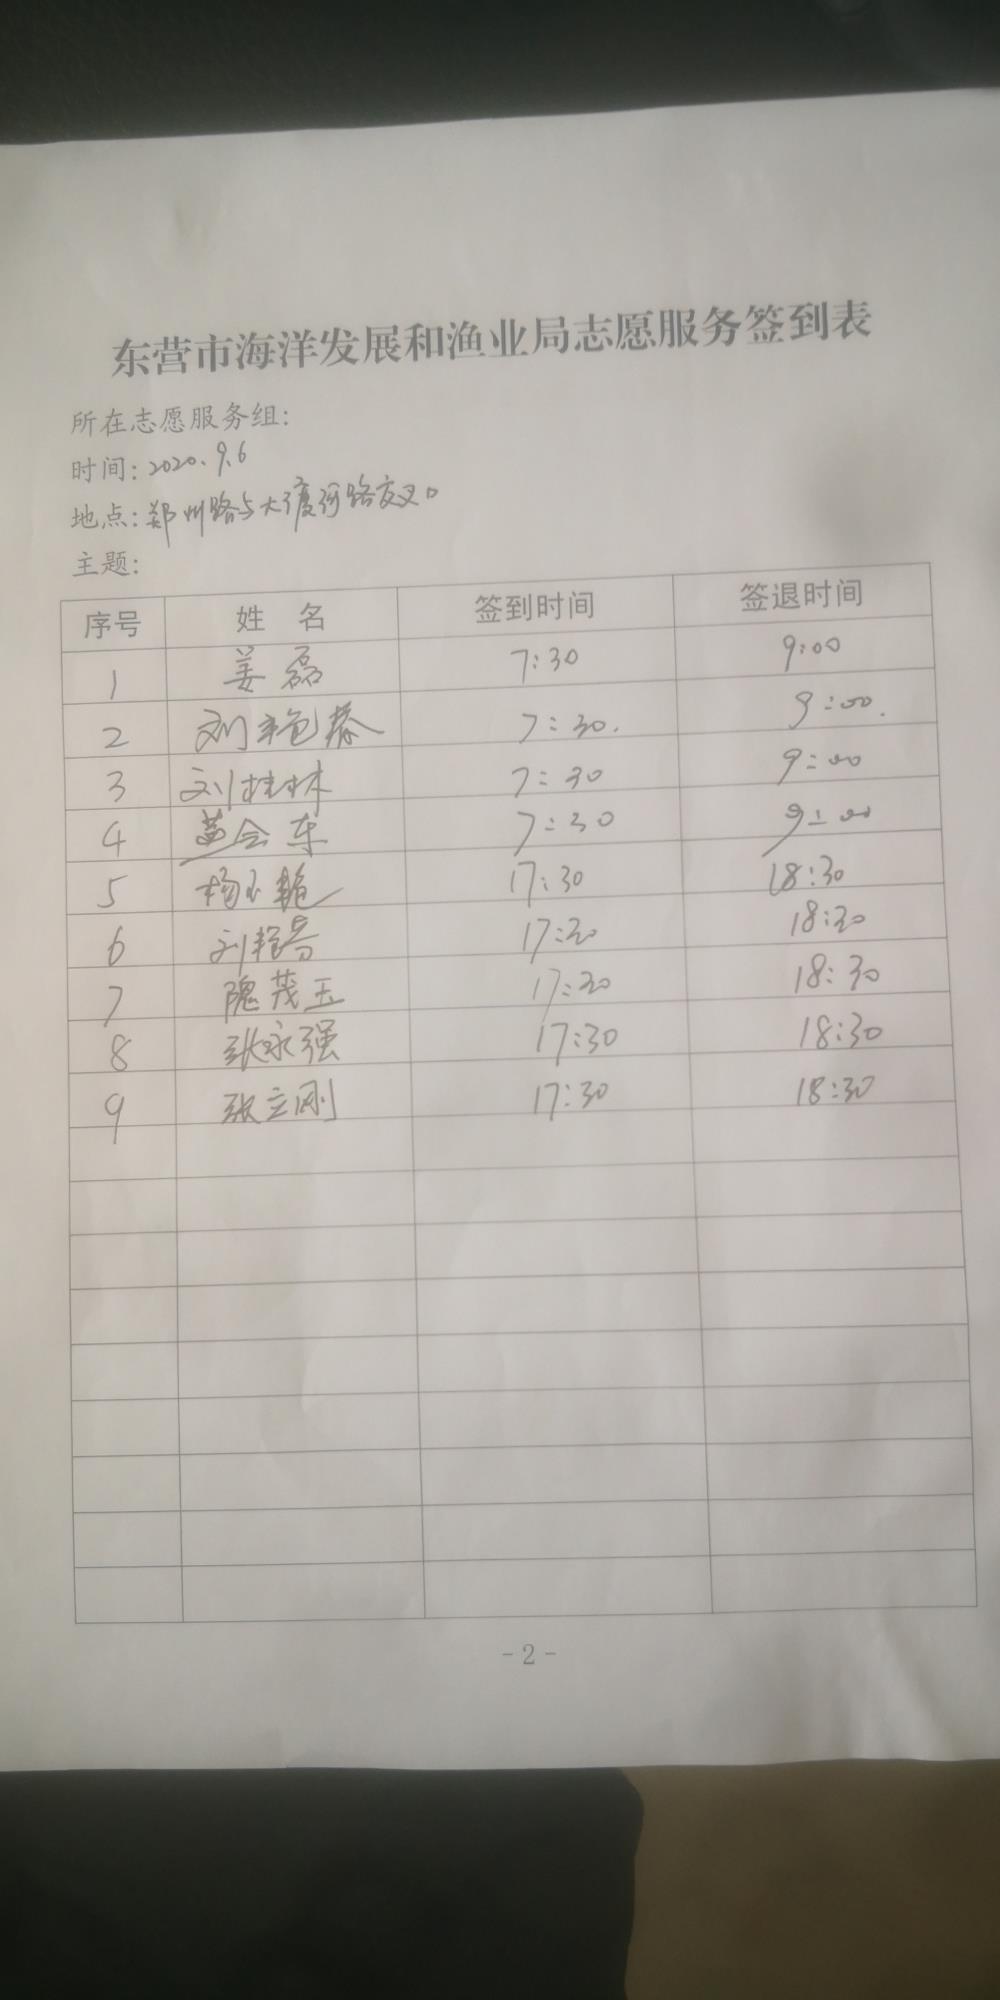 东营市海洋发展和渔业局志愿服务签到表
所在志愿服务组:
时间: 2020.9.6
地点: 郑州路与大渡河路交叉口
主题:
序号 姓 名 签到时间 签退时间
1 姜磊 7:30 9:00
2 刘艳春 7:30. 9:00.
3 刘桂林 7:30 9:00
4 会东 7:30 9:00
5 杨小艳 17:30 18:30
6 刘艳芳 17:30 18:30
7 隗茂玉 17:30 18:30
8 张永强 17:30 18:30
9 张立刚 17:30 18:30
- 2 -